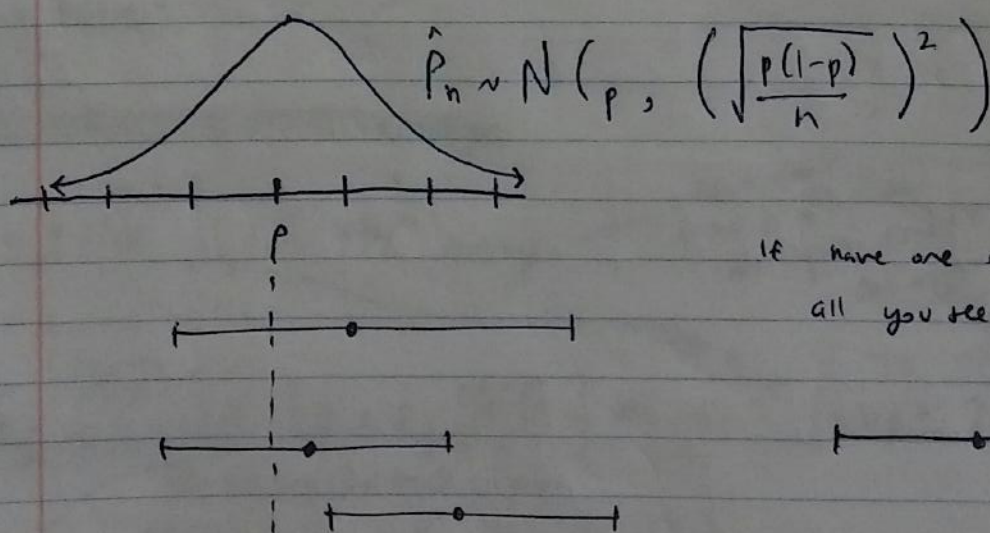 P̂ₙ ~ N (p, (√(p(1-p)/n))²)
p
If have one
all you see